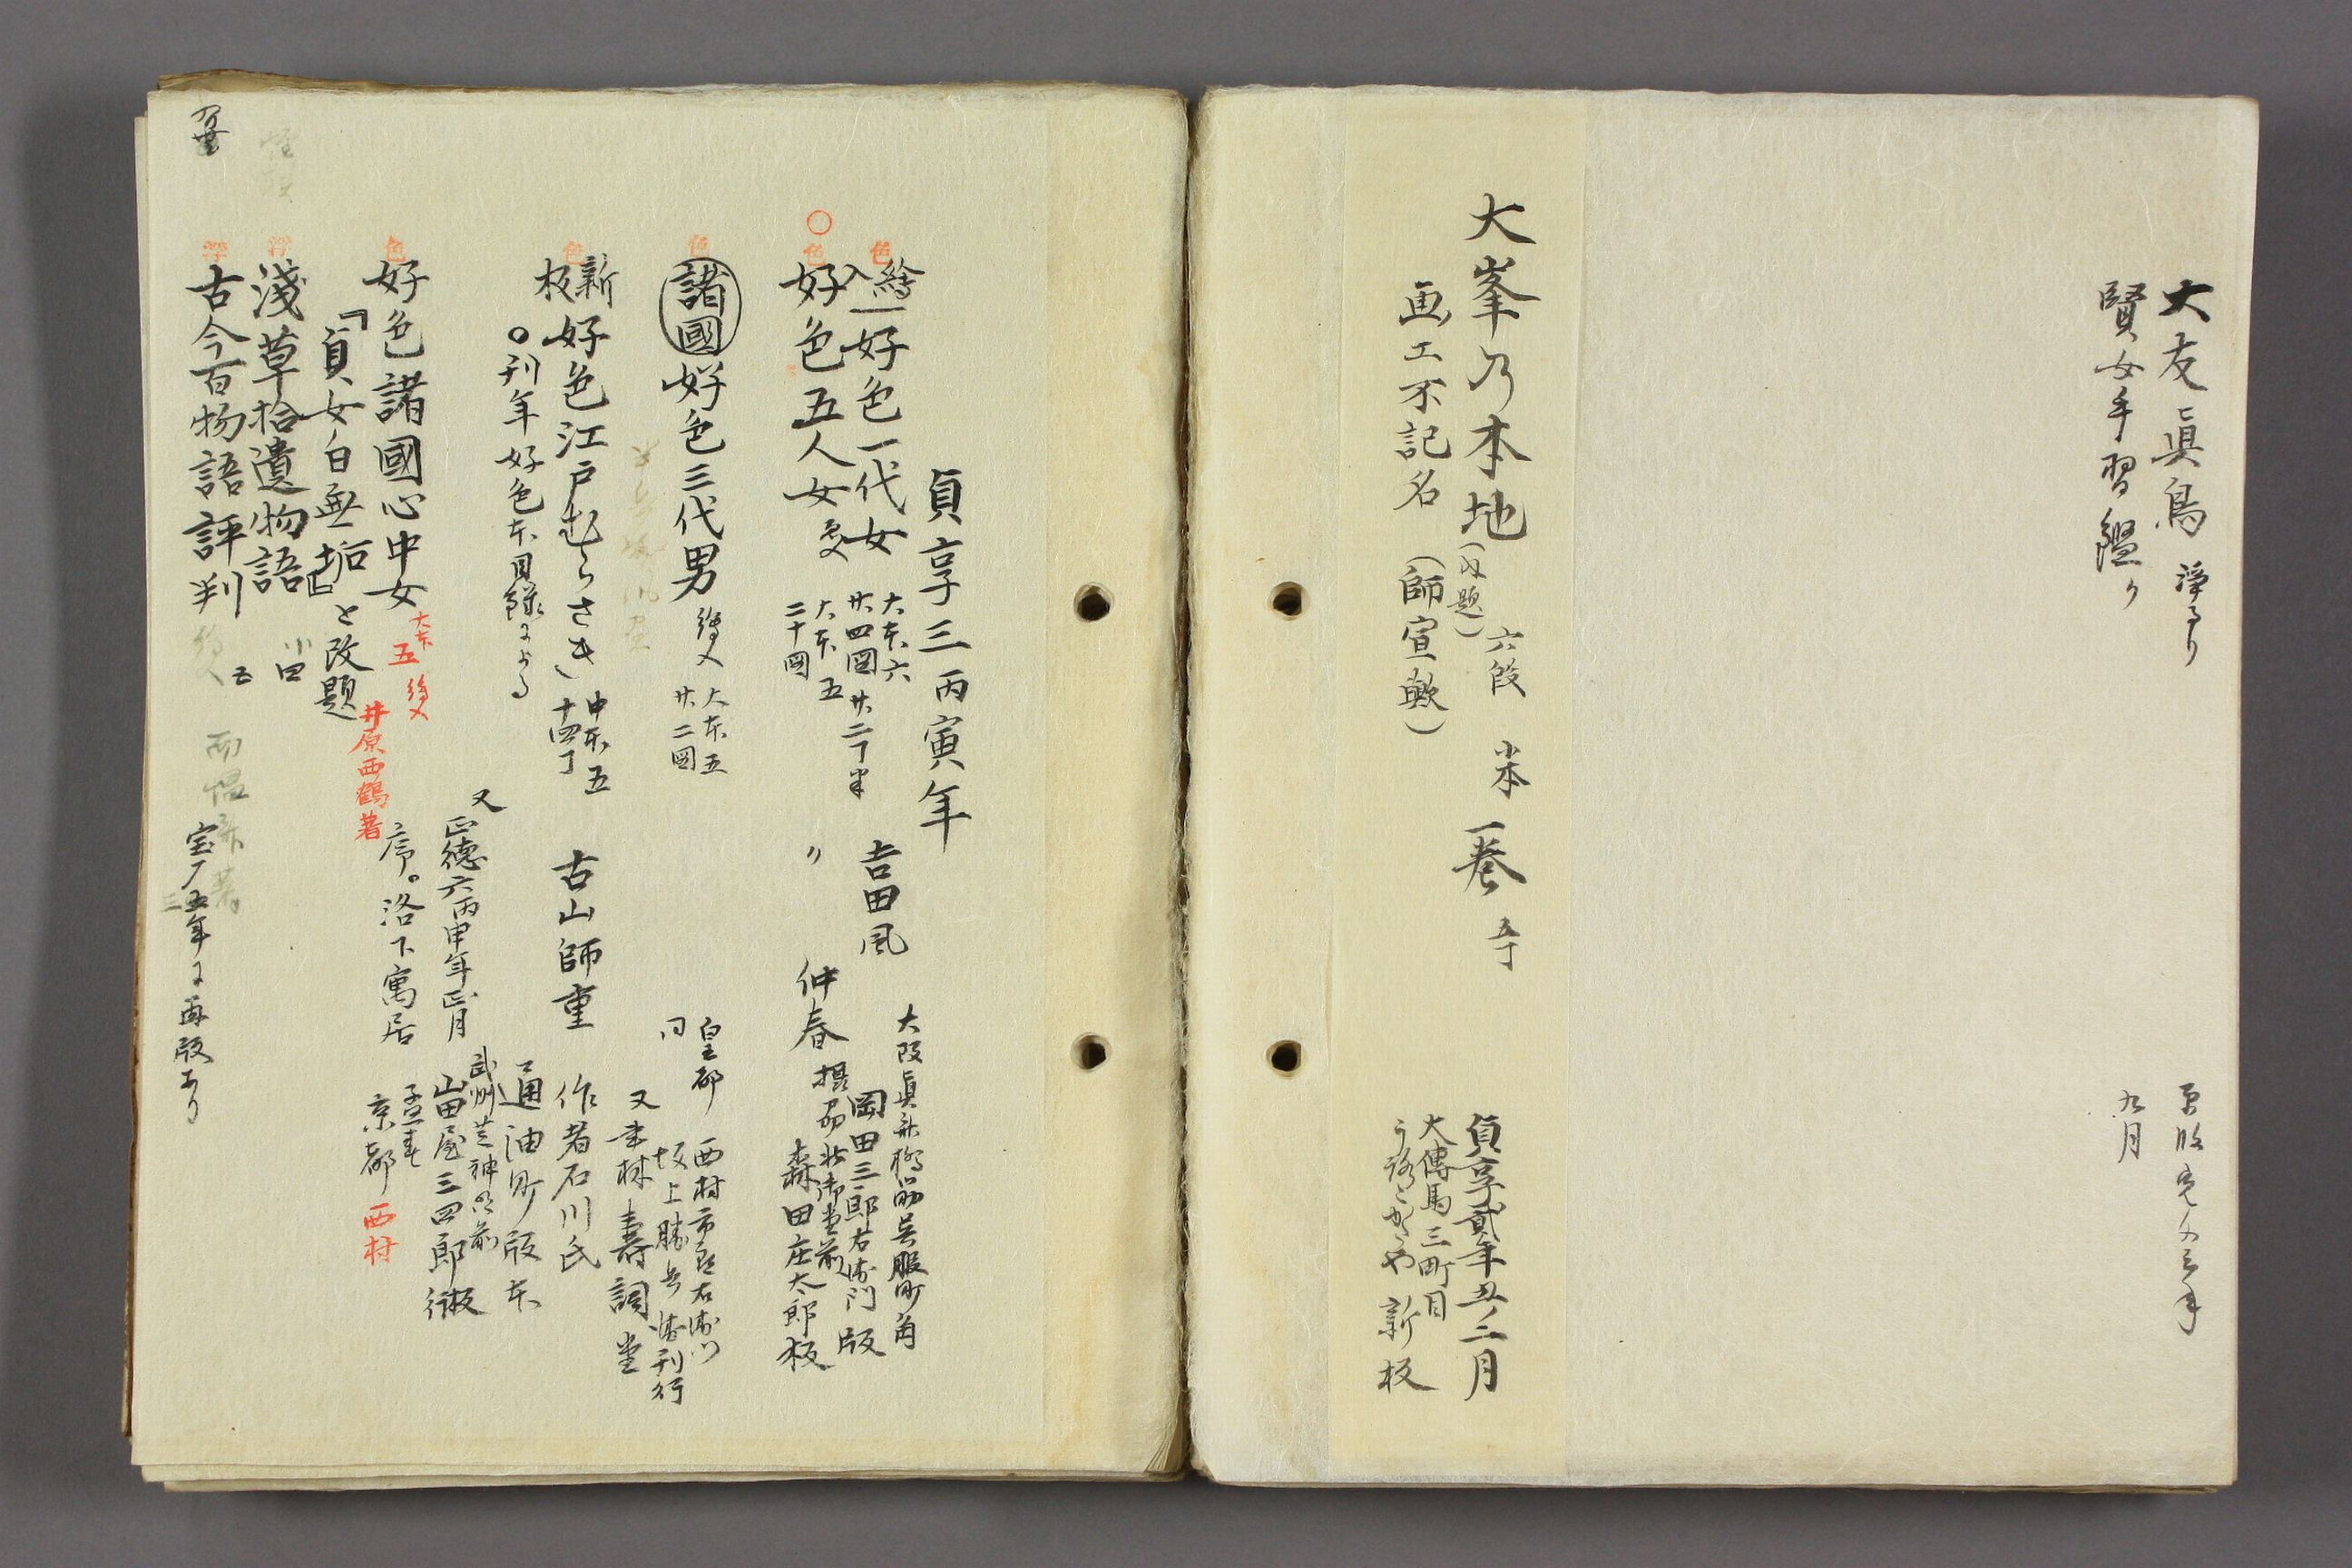 大友真鳥 浄るり
賢女手習鑑 〃
九月
大峯乃本地 六段 半本 一巻
画工不記名 (師宣歟)
貞享貳年丑ノ二月
大傳馬三町目
うろこかたや 新板
貞享三丙寅年
色
繪入 好色一代女 大本六 廿四図 廿二丁半 吉田風 大阪真斎橋筋呉服町角
岡田三郎右衛門版
〇色
好色五人女 大本五 二十図 〃 仲春 摂州北御堂前
森田庄太郎板
色
諸國 好色三代男 繪入 大本五 廿二図 皇都 西村市郎右衛門
同 坂上勝兵衛刊行
又 書林 壽詞堂
色
新板 好色江戸むらさき 中本五 十四丁 古山師重 作者石川氏
〇刊年好色本目録による 通油町版本
又 正徳六丙申年正月 武州芝神明前
山田屋三四郎板
色
好色諸國心中女 大本 五 繪入 序。洛下寓居 孟春
井原西鶴著 京都 西村
「貞女白無垢」と改題
浮
淺草拾遺物語 小四
浮
古今百物語評判 五 宝暦五年に再版あり